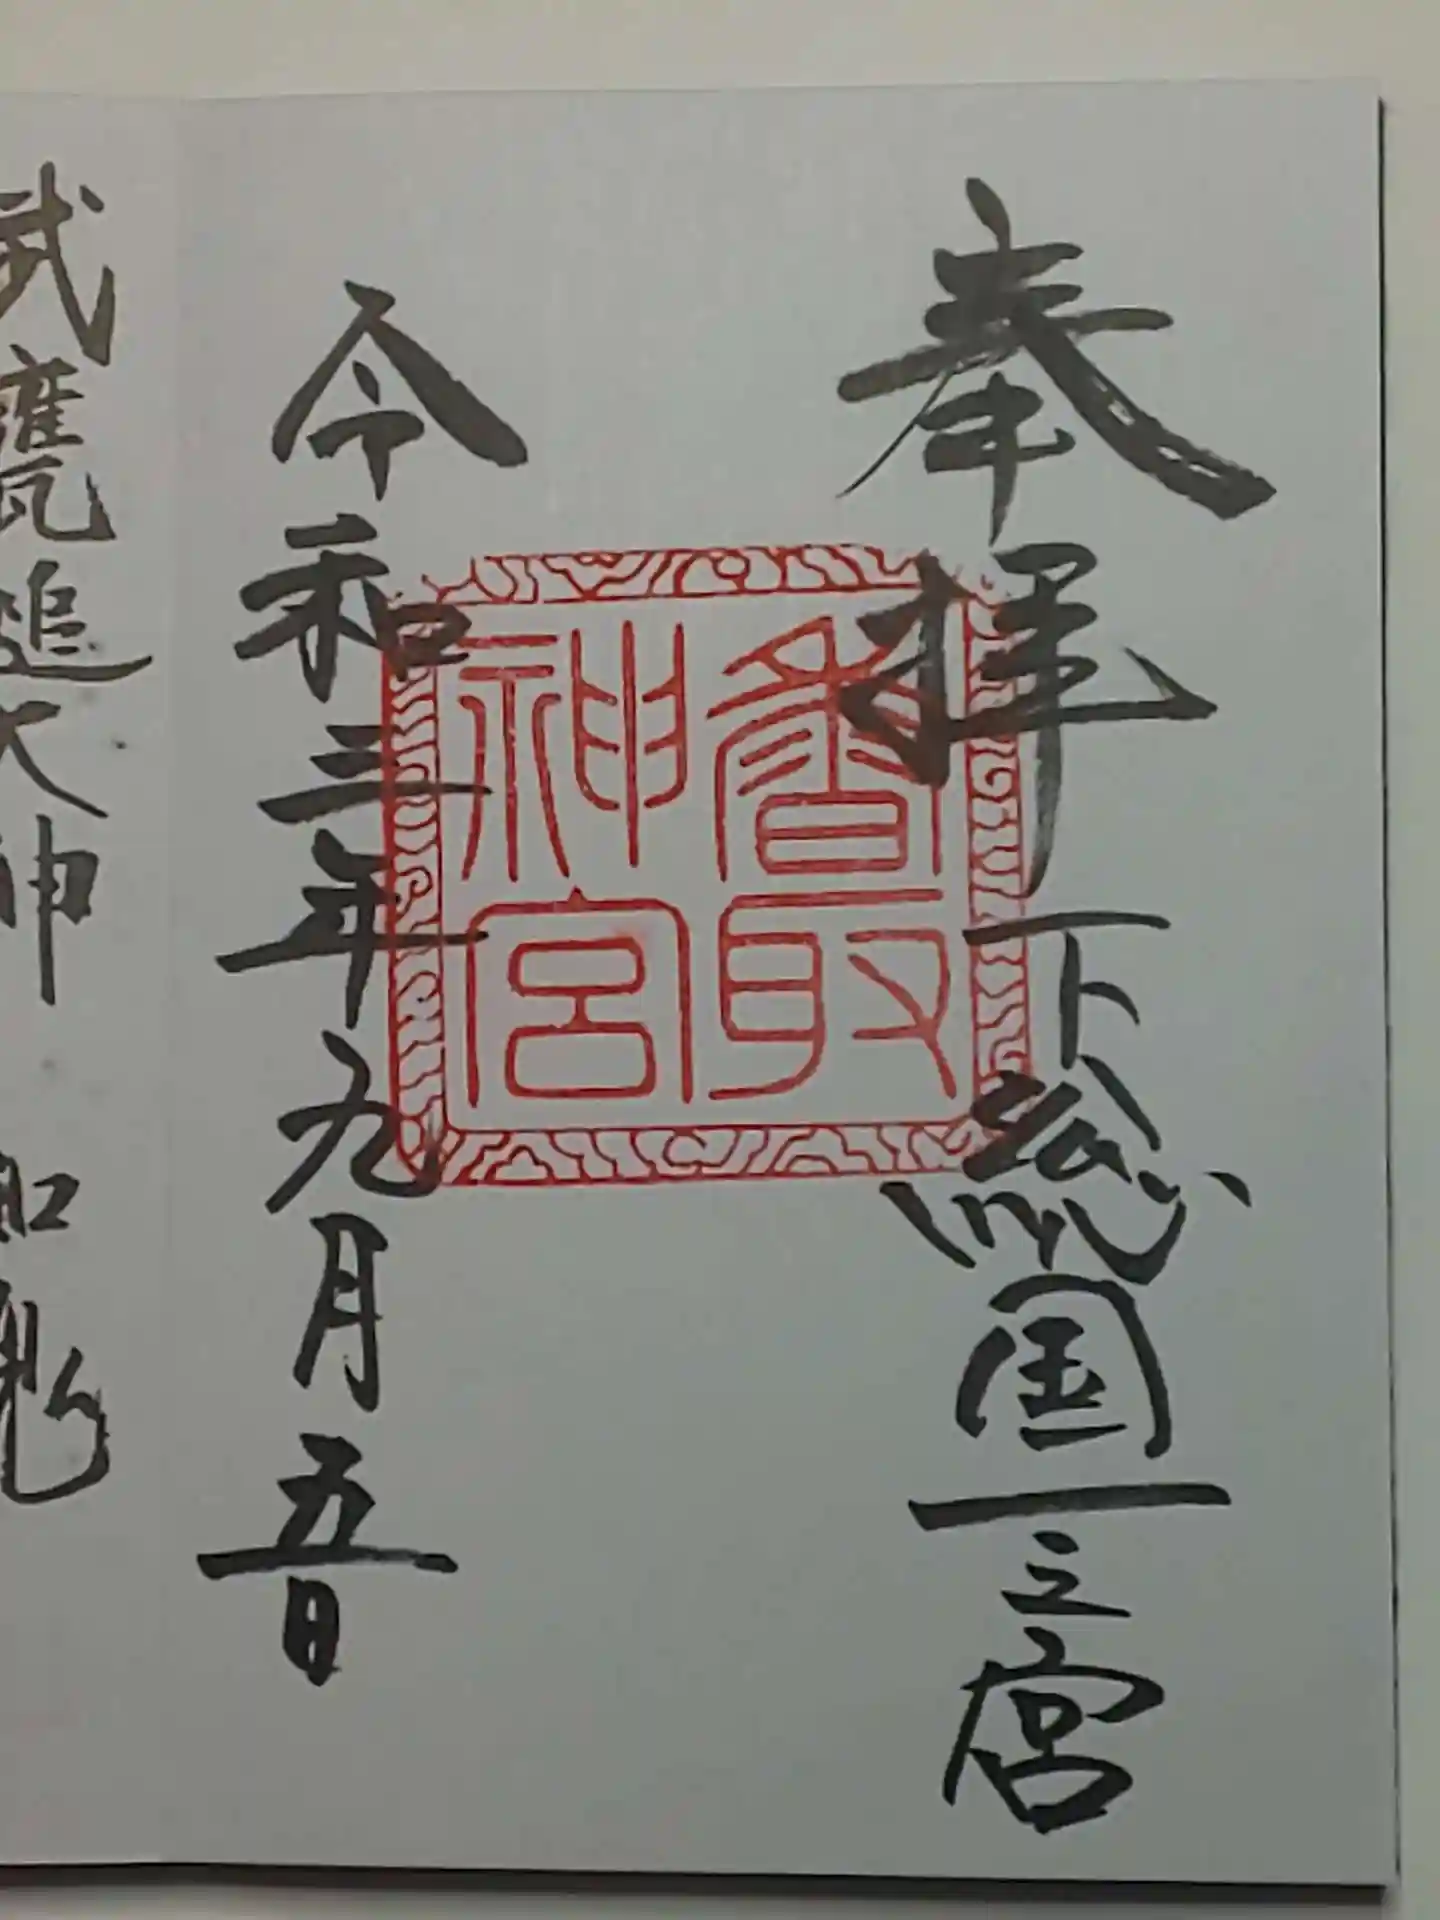 奉拝 下総国一之宮
香取神宮
令和三年九月五日
武甕追大神